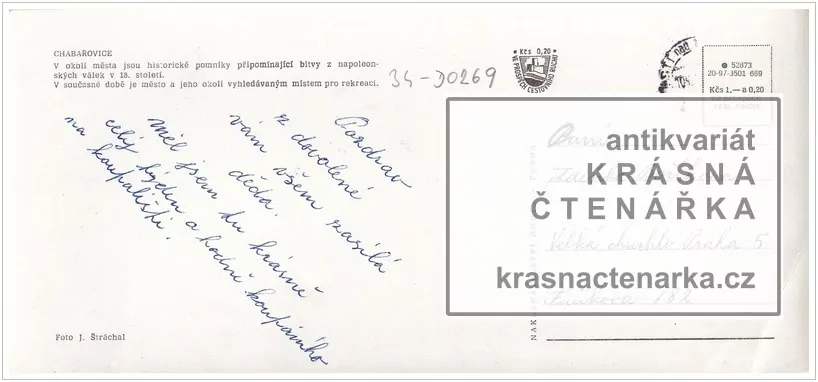 CHABAŘOVICE
V okolí města jsou historické pomníky připomínající bitvy z napoleon-
ských válek v 18. století.
V současné době je město a jeho okolí vyhledávaným místem pro rekreaci.
34-D0269
* Kčs 0,20 *
VE PROSPĚCH CESTOVNÍHO RUCHU
52873
20-97-3501 669
Kčs 1,— a 0,20
Pozdrav
z dovolené
vám všem zasílá
děda.
Měl jsem tu krásně
celý týden a hodně koupámího
na koupališti.
antikvariát
KRÁSNÁ
ČTENÁŘKA
Velká Praha 5
krasnactenarka.cz
Foto J. Štráchal